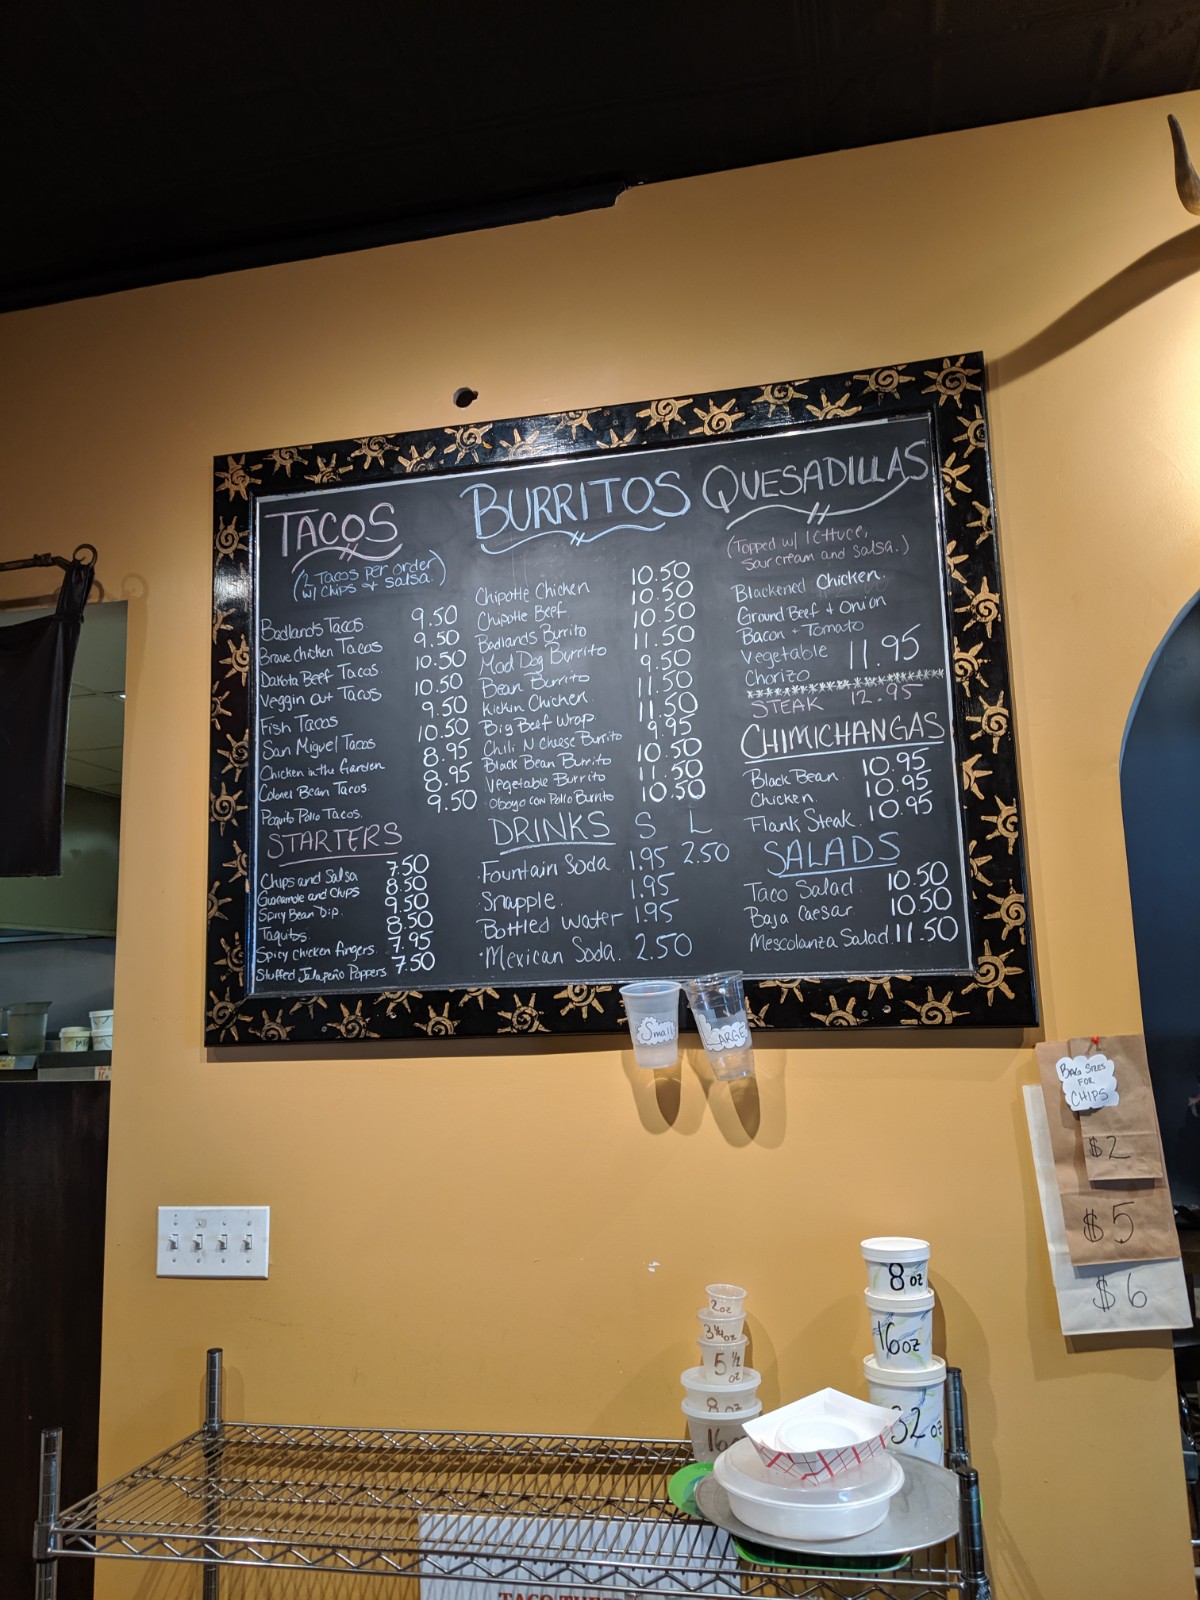 TACOS
(2 Tacos per order
w/ chips & salsa.)
Badlands Tacos 9.50
Brave Chicken Tacos 9.50
Dakota Beef Tacos 10.50
Veggin Out Tacos 10.50
Fish Tacos 9.50
San Miguel Tacos 10.50
Chicken in the Garden 8.95
Colonel Bean Tacos 8.95
Poquito Pollo Tacos 9.50
STARTERS
Chips and Salsa 7.50
Guacamole and Chips 8.50
Spicy Bean Dip 9.50
Taquitos 8.50
Spicy Chicken fingers 7.95
Stuffed Jalapeño Poppers 7.50
BURRITOS
Chipotle Chicken 10.50
Chipotle Beef 10.50
Badlands Burrito 10.50
Mad Dog Burrito 11.50
Bean Burrito 9.50
Kickin Chicken 11.50
Big Beef Wrap 11.50
Chili N Cheese Burrito 9.95
Black Bean Burrito 10.50
Vegetable Burrito 11.50
Con Pollo Burrito 10.50
DRINKS S L
Fountain Soda 1.95 2.50
Snapple 1.95
Bottled Water 1.95
Mexican Soda 2.50
QUESADILLAS
(Topped w/ lettuce,
sour cream and salsa.)
Blackened Chicken
Ground Beef + Onion
Bacon + Tomato
Vegetable 11.95
Chorizo
STEAK 12.95
CHIMICHANGAS
Black Bean 10.95
Chicken 10.95
Flank Steak 10.95
SALADS
Taco Salad 10.50
Baja Caesar 10.50
Mescolanza Salad 11.50
Small
LARGE
BAG SIZES
FOR
CHIPS
$2
$5
$6
2oz
3 1/4 oz
5 1/2
oz
8 oz
16o
8 oz
16oz
32 oz